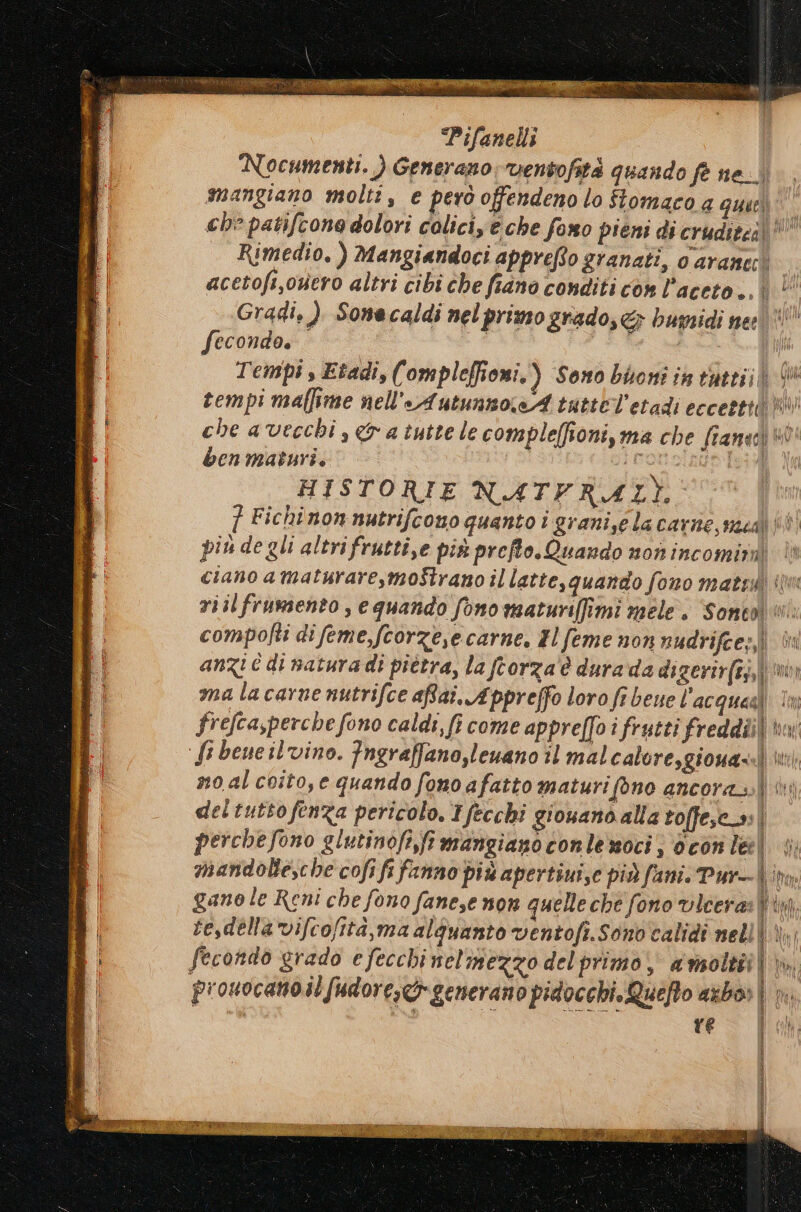 Pisanelli
Nocumenti. ) Generano ventosità quando se ne
mangiano molti, e però offendeno lo stomaco a
che patiscono dolori colici, e che sono pieni di
Rimedio. ) Mangiandoci appresso granati, o
acetosi, overo altri cibi che siano conditi con l'aceto.
Gradi. ) Sono caldi nel primo grado, & humidi nel
secondo.
Tempi, Etadi, Complessioni. ) Sono buoni in tutti i
tempi massime nell'Autunno. A tutte l'etadi
che a vecchi, & a tutte le complessioni, ma che siano
ben maturi.
HISTORIE NATVRALI.
I Fichi non nutriscono quanto i grani, e la carne, ma
più de gli altri frutti, e più presto. Quando non incomin
ciano a maturare, mostrano il latte, quando sono matu
ri il frumento, e quando sono maturissimi mele. Sono
composti di seme, scorze, e carne. Il seme non nudrisce,
anzi è di natura di pietra, la scorza è dura da digerirsi,
ma la carne nutrisce assai. Appresso loro si beue l'acqua
fresca, perche sono caldi, si come appresso i frutti freddi
si beue il vino. Ingrassano, leuano il mal calore, gioua
no al coito, e quando sono afatto maturi sono ancora
del tutto senza pericolo. I secchi giouano alla tosse, e
perche sono glutinosi, si mangiano con le noci, o con le
mandolle, che cosi si fanno più apertiui, e più sani. Pur
gano le Reni che sono sane, e non quelle che sono vlcera
te, della viscosità, ma alquanto ventosi. Sono calidi nel
secondo grado e secchi nel mezzo del primo, a molti
prouocano il sudore, & generano pidocchi. Questo arbo
re